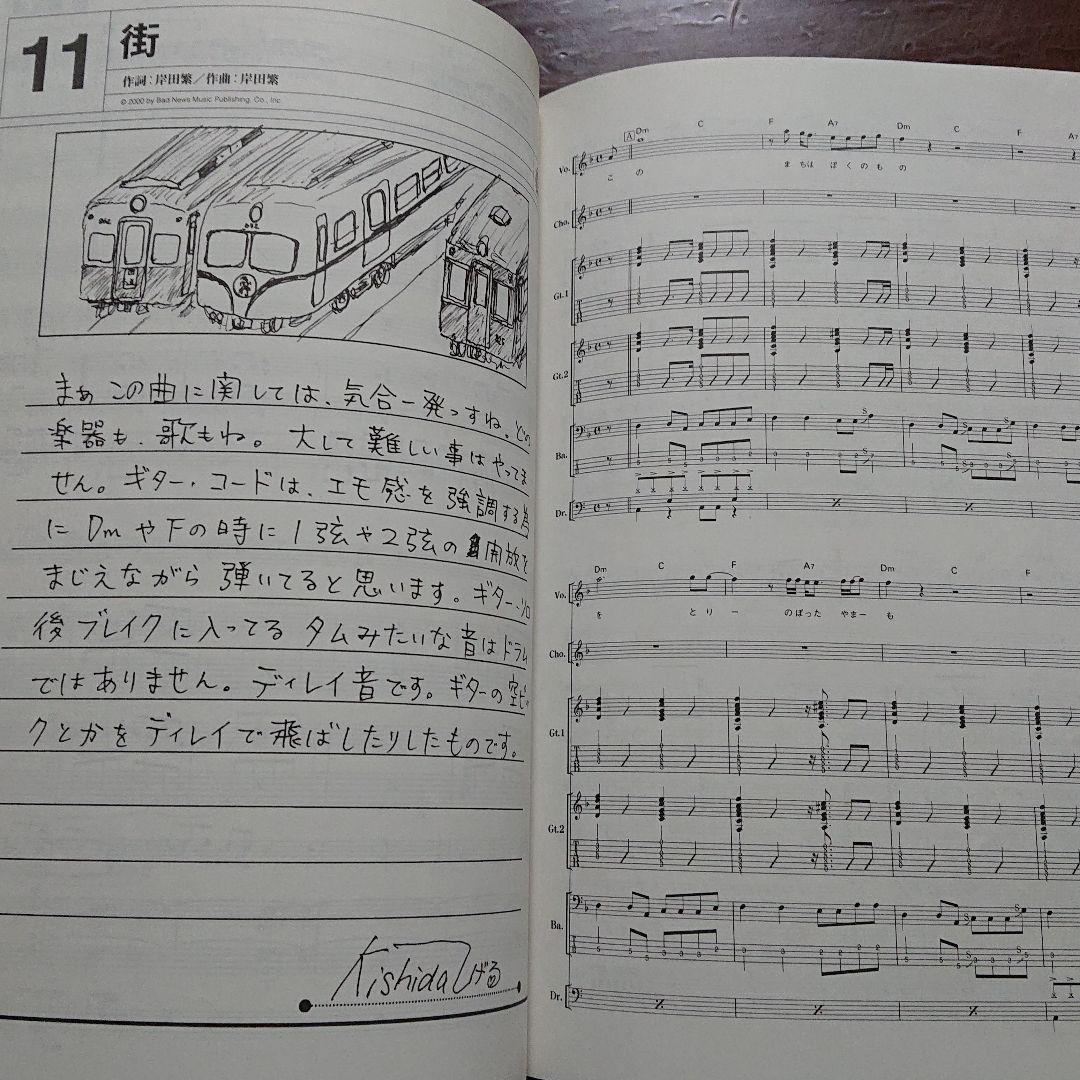 11
街
作詞:岸田繁/作曲:岸田繁
© 2000 by Bad News Music Publishing. Co., Inc.
まぁ この曲に関しては、気合一発っすね。どの
楽器も、歌もね。大して難しい事はやってま
せん。ギター・コードは、エモ感を強調する為
に Dmや Fの時に 1弦や2弦の 開放を
まじえながら 弾いてると思います。ギター・ソロ
後 ブレイクに入ってる タムみたいな音はドラム
ではありません。ディレイ音です。ギターの空ピッ
クとかを ディレイで飛ばしたりしたものです。
Kishidaしげる
A Dm C F A7 Dm C F A7
Vo.
この まちは ぼくのもの
Cho.
Gt.1
Gt.2
Ba.
Dr.
Dm C F A7 Dm C F
Vo.
を とりー のぼった やまー も
Cho.
Gt.1
Gt.2
Ba.
Dr.